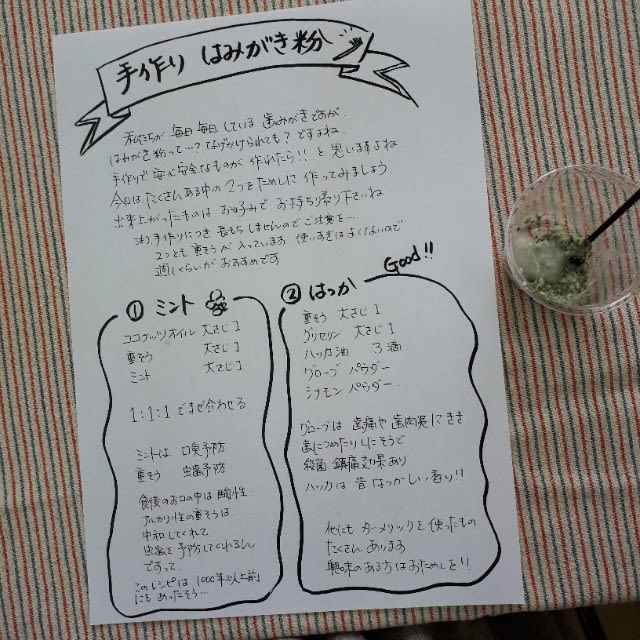 手作り はみがき粉
私たちが 毎日毎日している 歯みがきですが、
はみがき粉って…? なげかけられても? ですよね.
手作りで安心安全なものが 作れたら!! と思いますよね
今日は たくさんある中の 2つをためしに 作ってみましょう
出来上がったものは お好みで お持ち帰り下さいね
注) 手作りにつき 長もちしませんのでご注意を…
2つとも 重そうが 入っています 使いすぎはよくないので
週1くらいが おすすめです
① ミント
ココナッツオイル 大さじ1
重そう 大さじ1
ミント 大さじ1
1:1:1 でまぜ合わせる
ミントは 口臭予防
重そう 虫歯予防
食後のお口の中は 酸性.
アルカリ性の重そうは
中和してくれて、
虫歯を予防してくれるん
ですって、
このレシピは 1000年以上前
にもあったそう…
② はっか Good!!
重そう 大さじ1
グリセリン 大さじ1
ハッカ油 3滴
クローブ パウダー
シナモン パウダー
クローブは 歯痛や 歯肉炎にきき
歯につめたりしたそうで
殺菌 鎮痛効果あり
ハッカは 昔なつかしい香り!!
他にも ターメリックを使ったもの
たくさん あります
興味のある方はおためしを!!